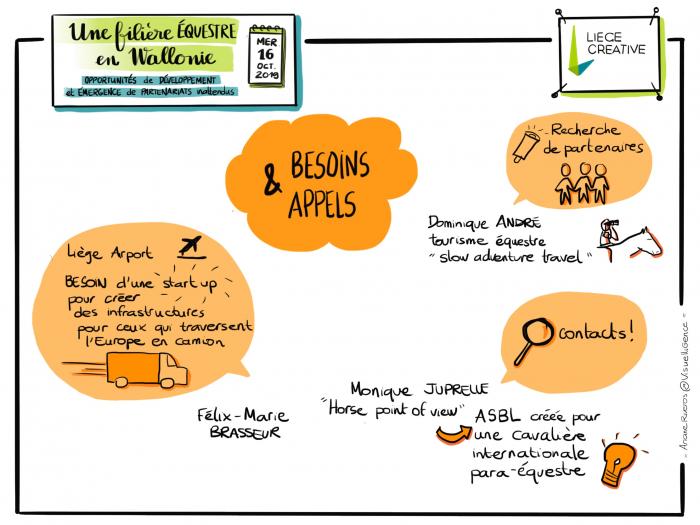 Une filière ÉQUESTRE
en Wallonie
OPPORTUNITÉS de DÉVELOPPEMENT
et ÉMERGENCE de PARTENARIATS inattendus
MER
16
OCT.
2019
LIEGE
CREATIVE
& BESOINS
APPELS
Recherche
de partenaires
Dominique ANDRÉ
tourisme équestre
"slow adventure travel"
Liège Arport
BESOIN d'une start up
pour créer
des infrastructures
pour ceux qui traversent
l'Europe en camion
Félix-Marie
BRASSEUR
Contacts!
Monique JUPRELLE
"Horse point of view"
ASBL créée pour
une cavalière
internationale
para-équestre
- Ariane Rueros @Visuelligence -